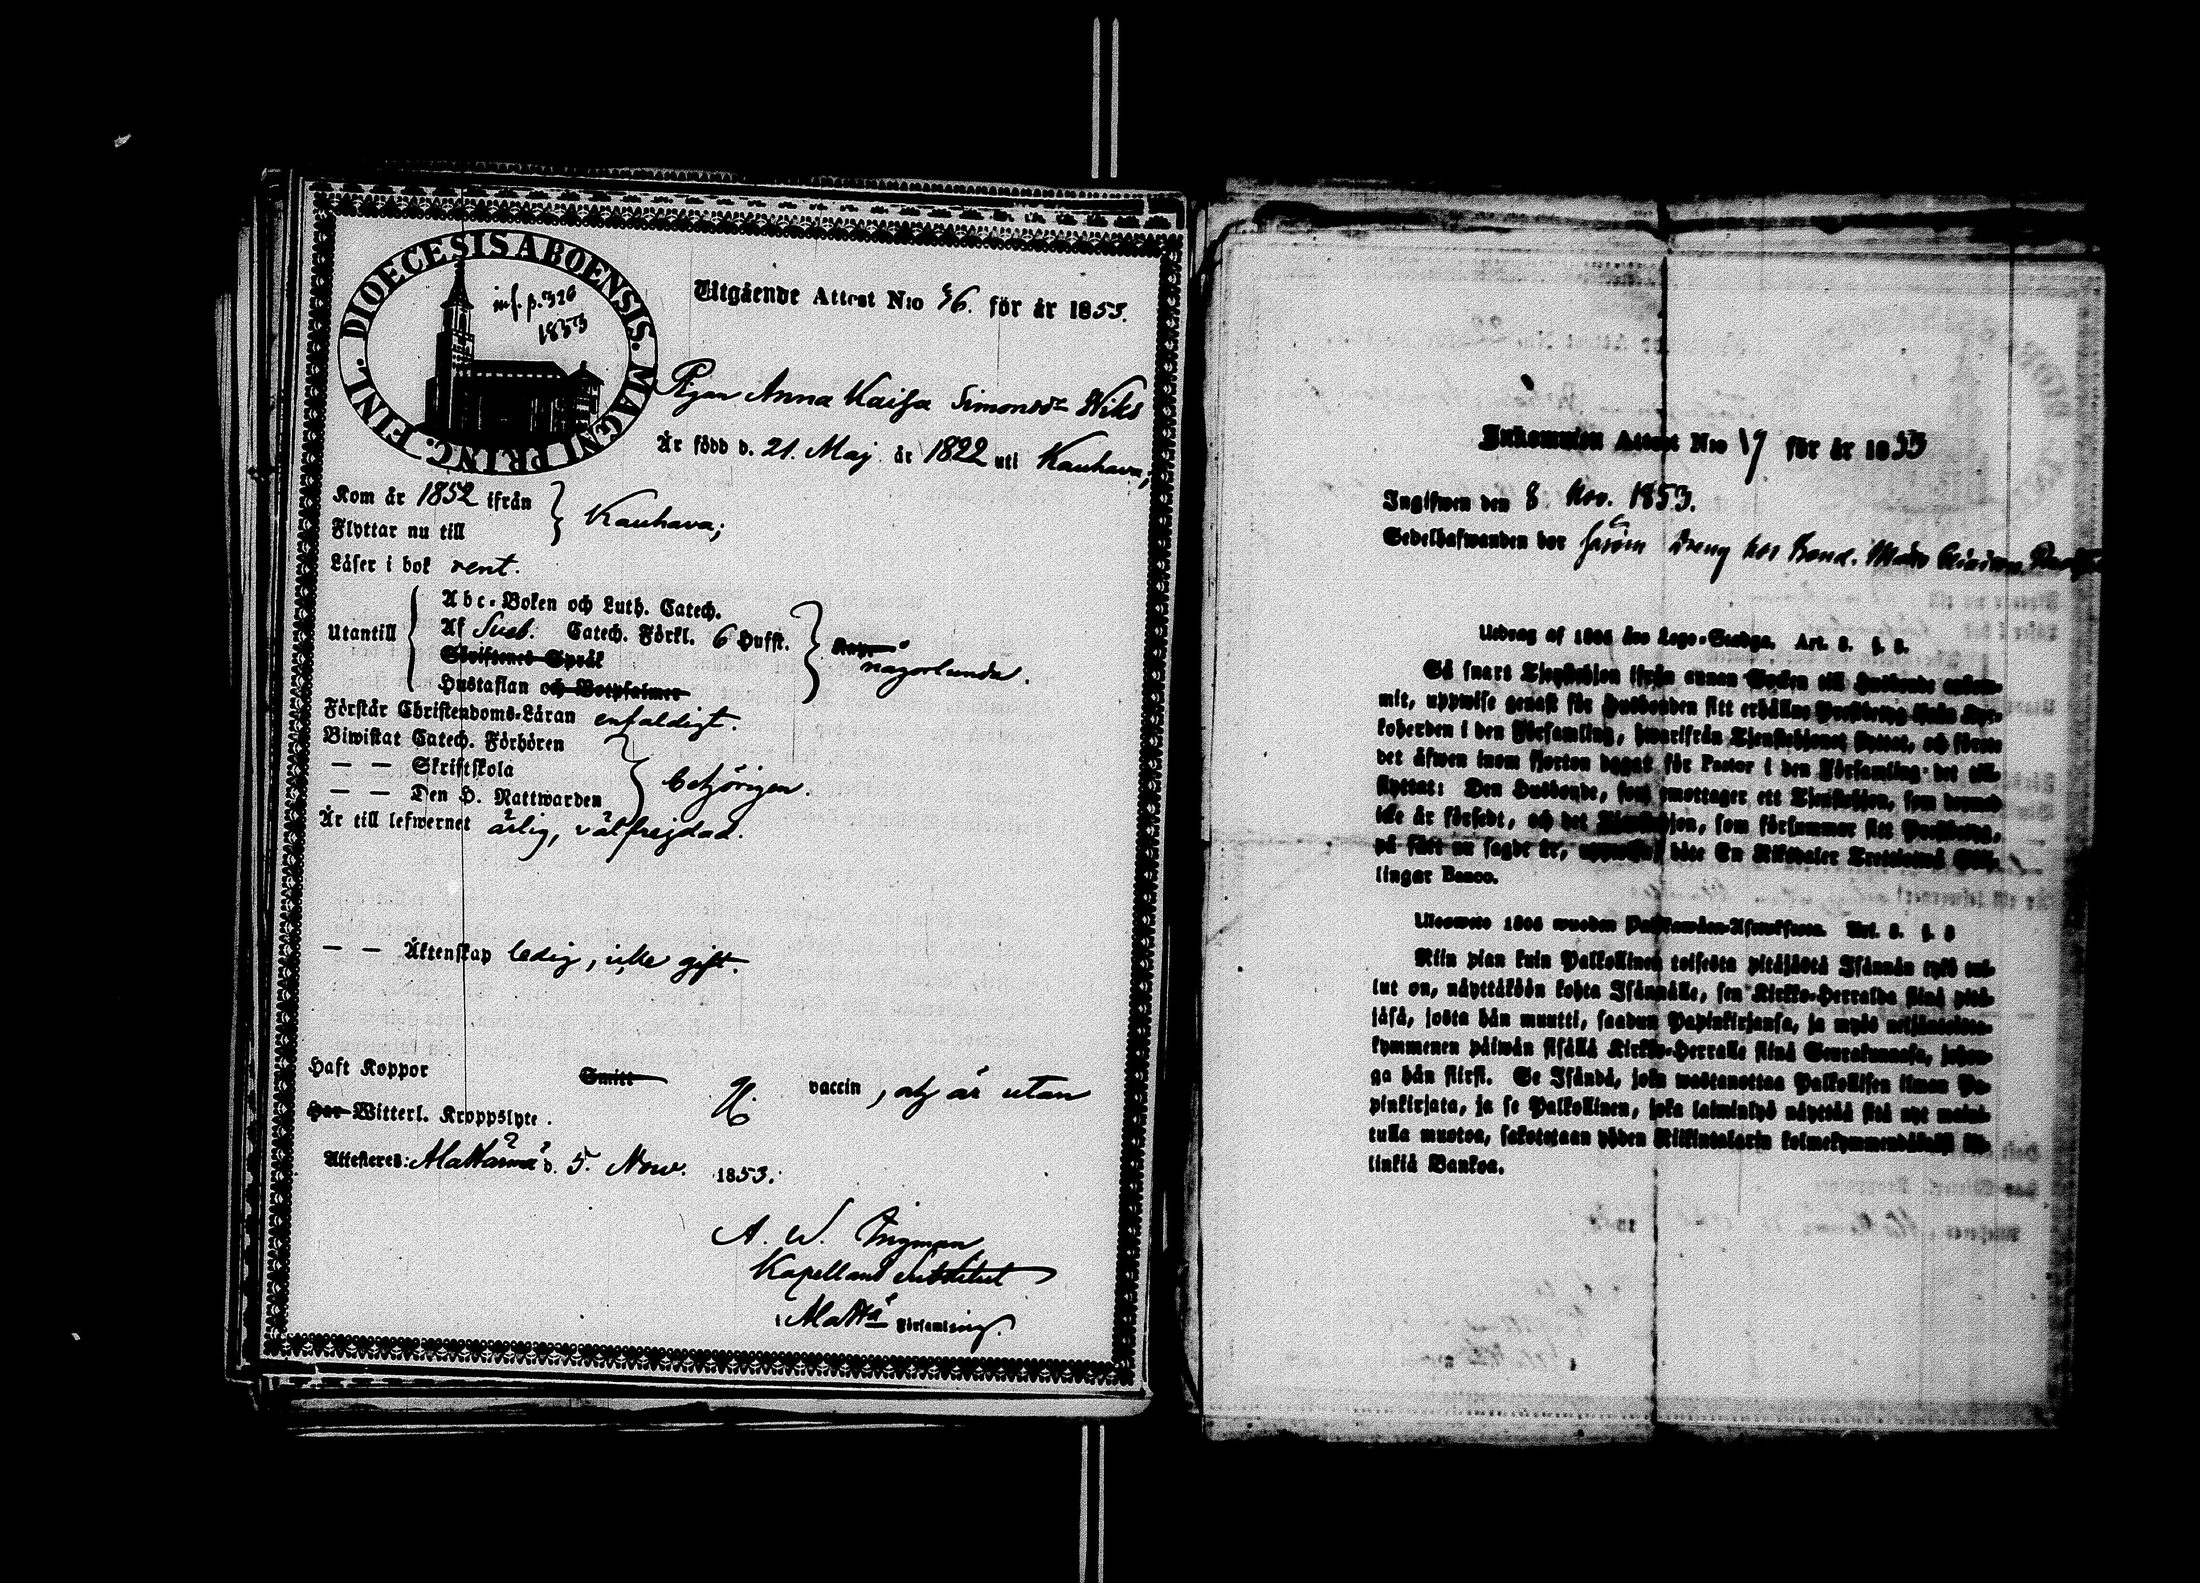 DIOECESIS ABOENSIS. MAGNI PRINC. FINL.
inf. p. 326
1853
Utgående Attest N:o 46. för år 1853.
Pigan Anna Kaisa Simonsdr Wiks
Är född d. 21. Maj år 1822 uti Kauhava;
Kom år 1852 ifrån
Flyttar nu till
Kauhava;
Läser i bok rent.
Utantill
Abc-Boken och Luth. Catech.
Af Sveb. Catech. Förkl. 6 Hufst.
Skriftenes Språk
Hustaflan och Botpsalmer
någorlunda.
Förstår Christendoms-Läran enfaldigt.
Biwistat Catech. Förhören
— — Skriftskola
— — Den H. Nattwarden
behörigen.
Är till lefwernet ärlig, välfrejdad.
— — Äktenskap ledig, icke gift.
Haft Koppor Smitt vaccin, och är utan
Har Witterl. Kroppslyte.
Attesteras: d. 5. Nov. 1853.
A. W. Ingman
Kapellans substitut
i Församling.
Inkommen Attest N:o 19 för år 1853
Ingifwen den 8 Nov. 1853.
Sedelhafwanden bor såsom hos Bond. Mats
Utdrag af 1805 års Lego-Stadga. Art. 8. §. 8.
Så snart Tjenstehjon ifrån annan Socken till Husbonde ankom-
mit, uppwise genast för Husbonden sitt erhållna Prestbetyg ifrån Kyr-
koherden i den Församling, hwarifrån Tjenstehjonet flyttat, och förete
det äfwen inom fjorton dagar för Pastor i den Församling det till-
flyttat: Den Husbonde, som emottager ett Tjenstehjon, som dermed
icke är försedt, och det Tjenstehjon, som försummar sitt Prestbetyg,
på sätt nu sagdt är, uppwisa, böte En Riksdaler Tretiotwå Skil-
lingar Banco.
Ulosweto 1805 wuoden Palkkawäen-Asetuksesta. Art. 8. §. 8
Niin pian kuin Palkollinen toisesta pitäjästä Isännän tykö tul-
lut on, näyttäköön kohta Isännälle, sen Kirkko-Herralda siinä pitä-
jäsä, josta hän muutti, saadun Papinkirjansa, ja myös neljäntoista-
kymmenen päiwän sisällä Kirkko-Herralle siinä Seurakunnasa, johon-
ga hän siirsi. Se Isändä, joka wastanottaa Palkollisen ilman Pa-
pinkirjata, ja se Palkollinen, joka laiminlyö näyttää sitä nyt maini-
tulla muotoa, sakotetaan yhden Riikintalarin kolmekymmendäkaksi kil-
linkiä Bankoa.